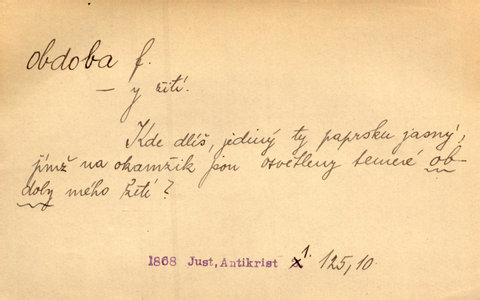 obdoba f.
– y žití.
Kde dlíš, jediný ty paprsku jasný,
jímž na okamžik jsou osvětleny temné ob-
doby mého žití?
1868 Just, Antikrist 1. 125,10